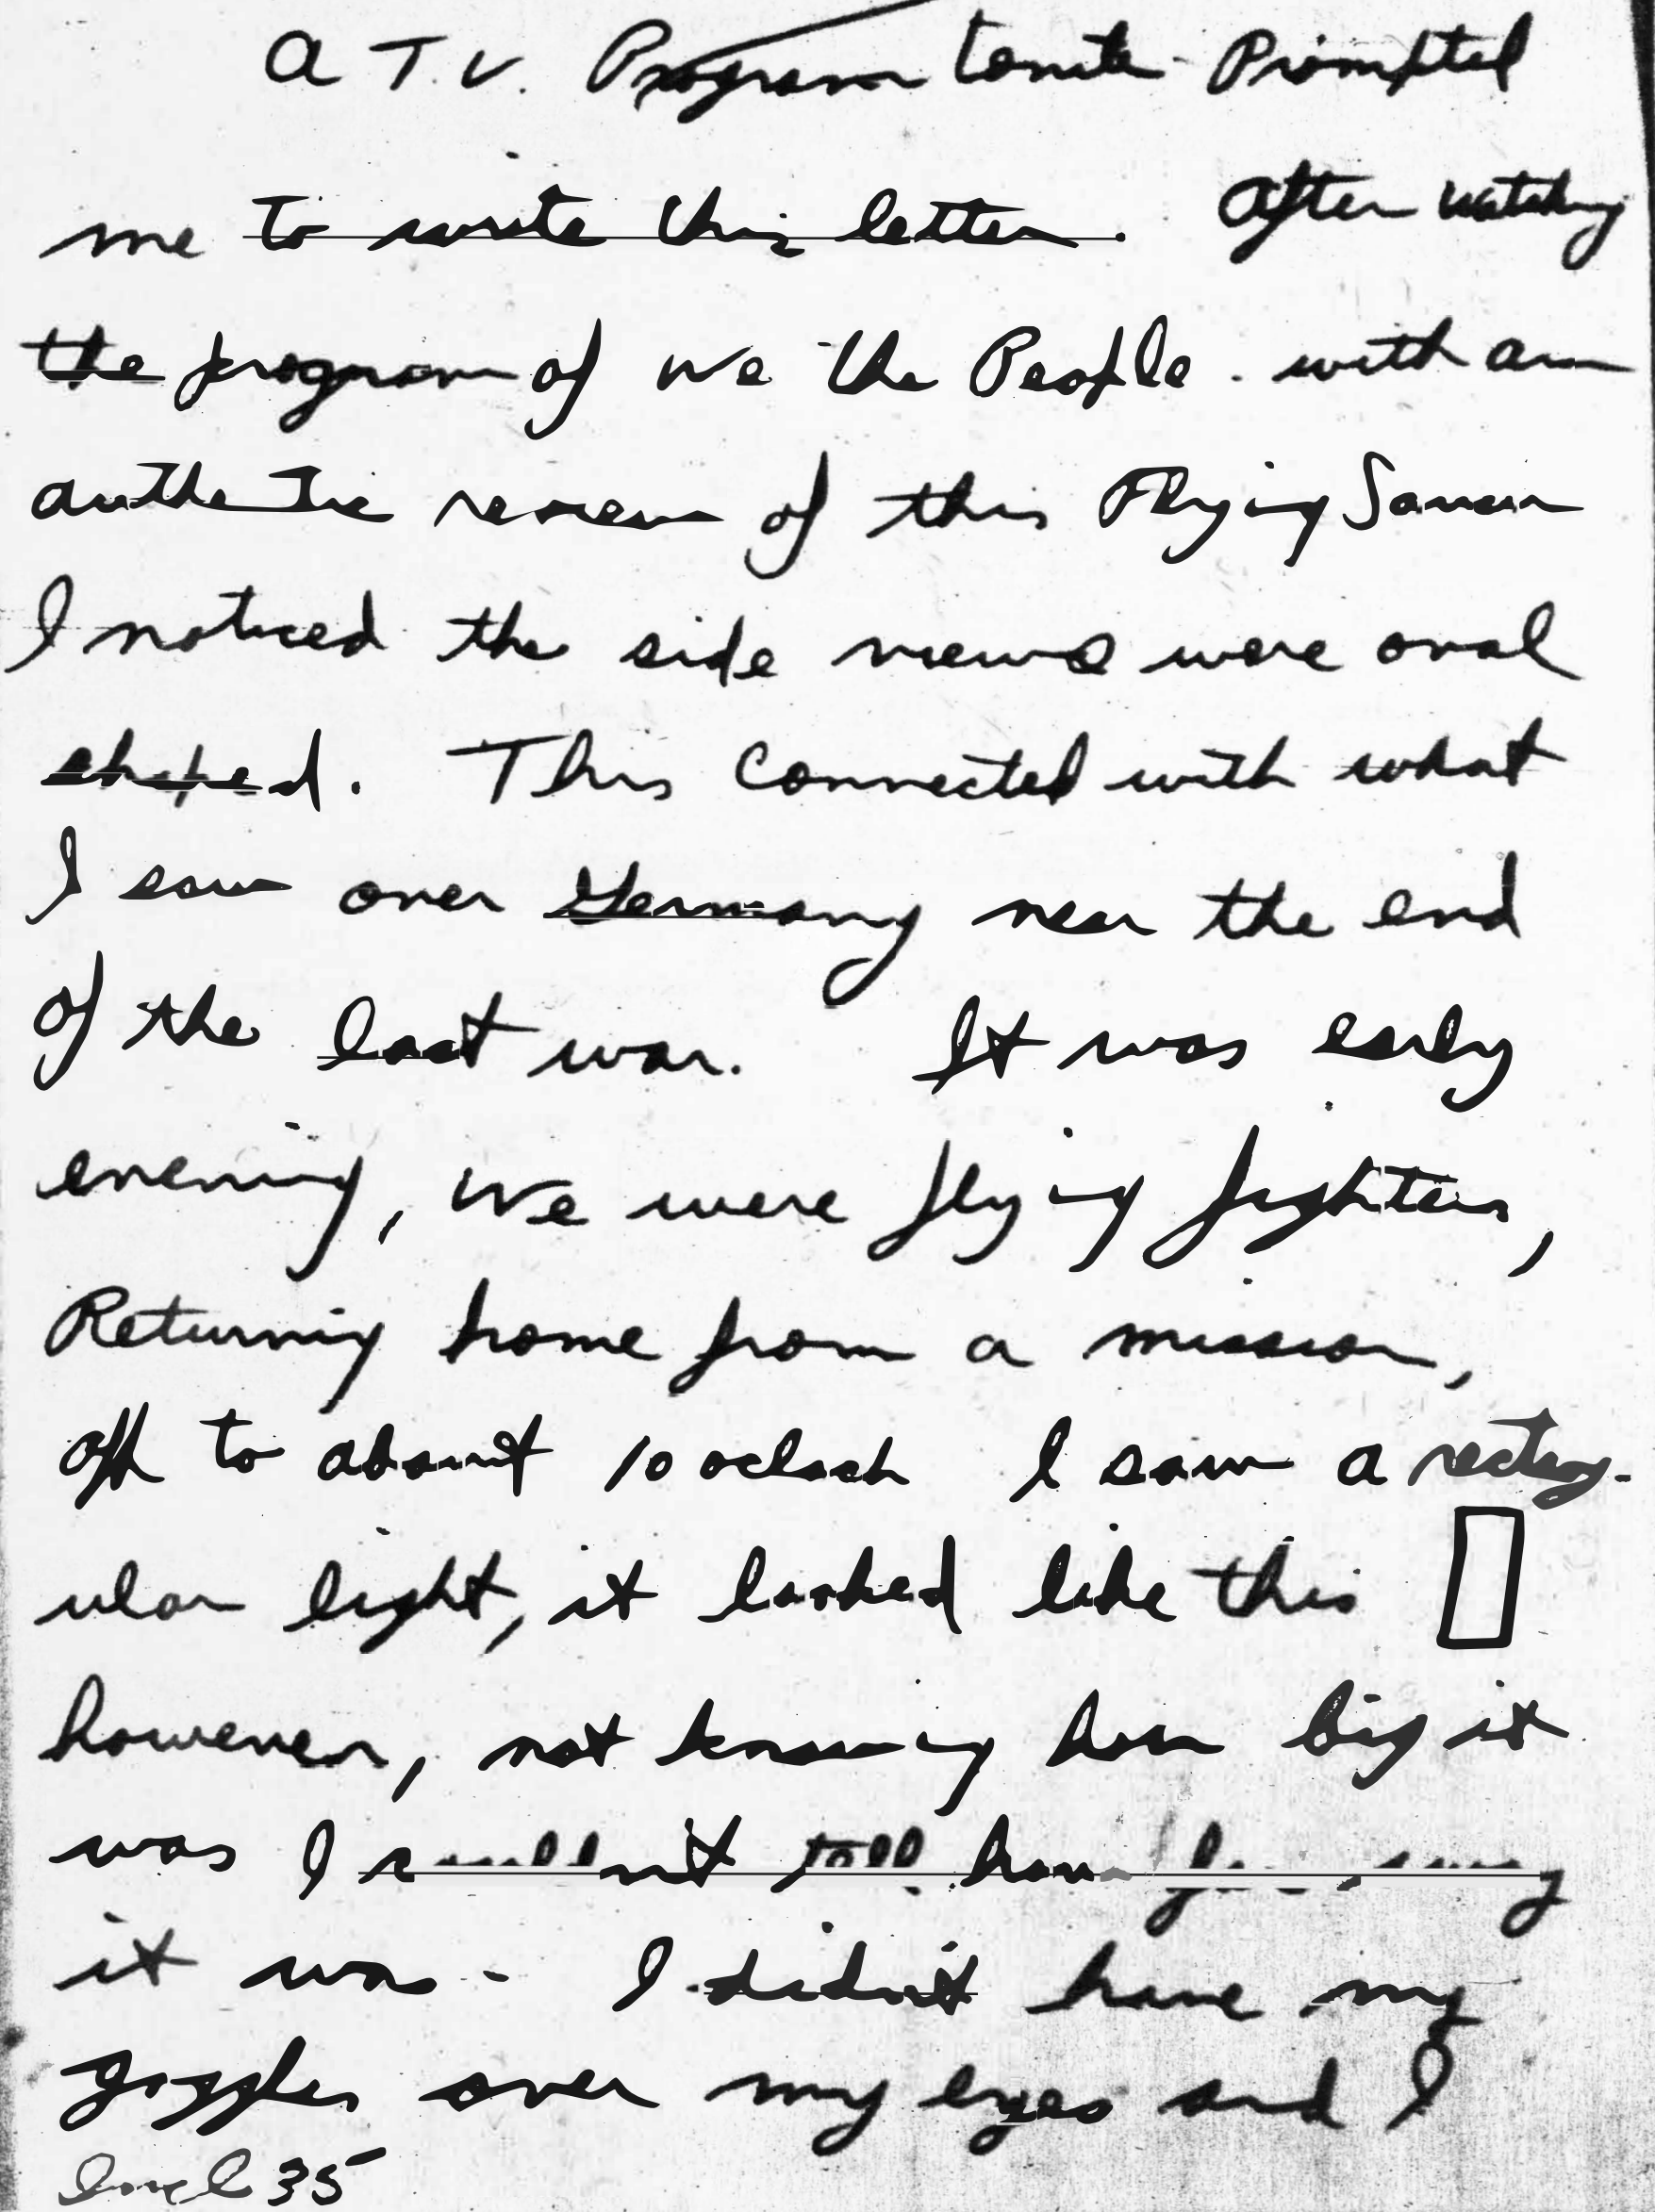 A T.V. Program tonite Prompted
me to write this letter. After watching
the program of We the People. with an
authentic review of this Flying Saucer
I noticed the side views were oval
shaped. This connected with what
I saw over Germany near the end
of the last war. It was early
evening, We were flying fighters,
Returning home from a mission,
off to about 10 oclock I saw a rectang-
ular light, it looked like this
however, not knowing how big it
was I couldn't tell how far away
it was - I didn't have my
goggles over my eyes and I
35